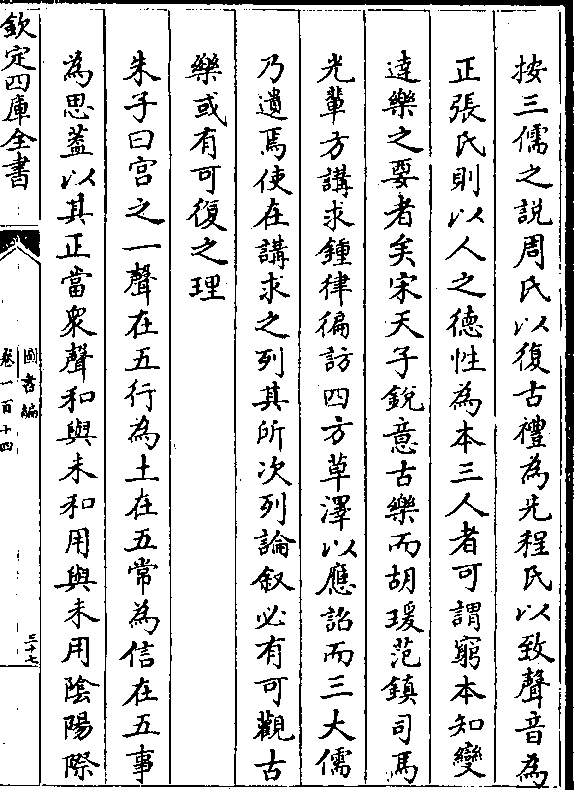 按三儒之說周氏以復古禮為先程氏以致聲音為
正張氏則以人之德性為本三人者可謂窮本知變
達樂之要者矣宋天子銳意古樂而胡瑗范鎮司馬
光輩方講求鍾律徧訪四方草澤以應詔而三大儒
乃遺焉使在講求之列其所次列論敘必有可觀古
樂或有可復之理
朱子曰宫之一聲在五行為土在五常為信在五事
為思葢以其正當衆聲和與未和用與未用陰陽際
欽定四庫全書
圖書編
卷一百十四
三十七